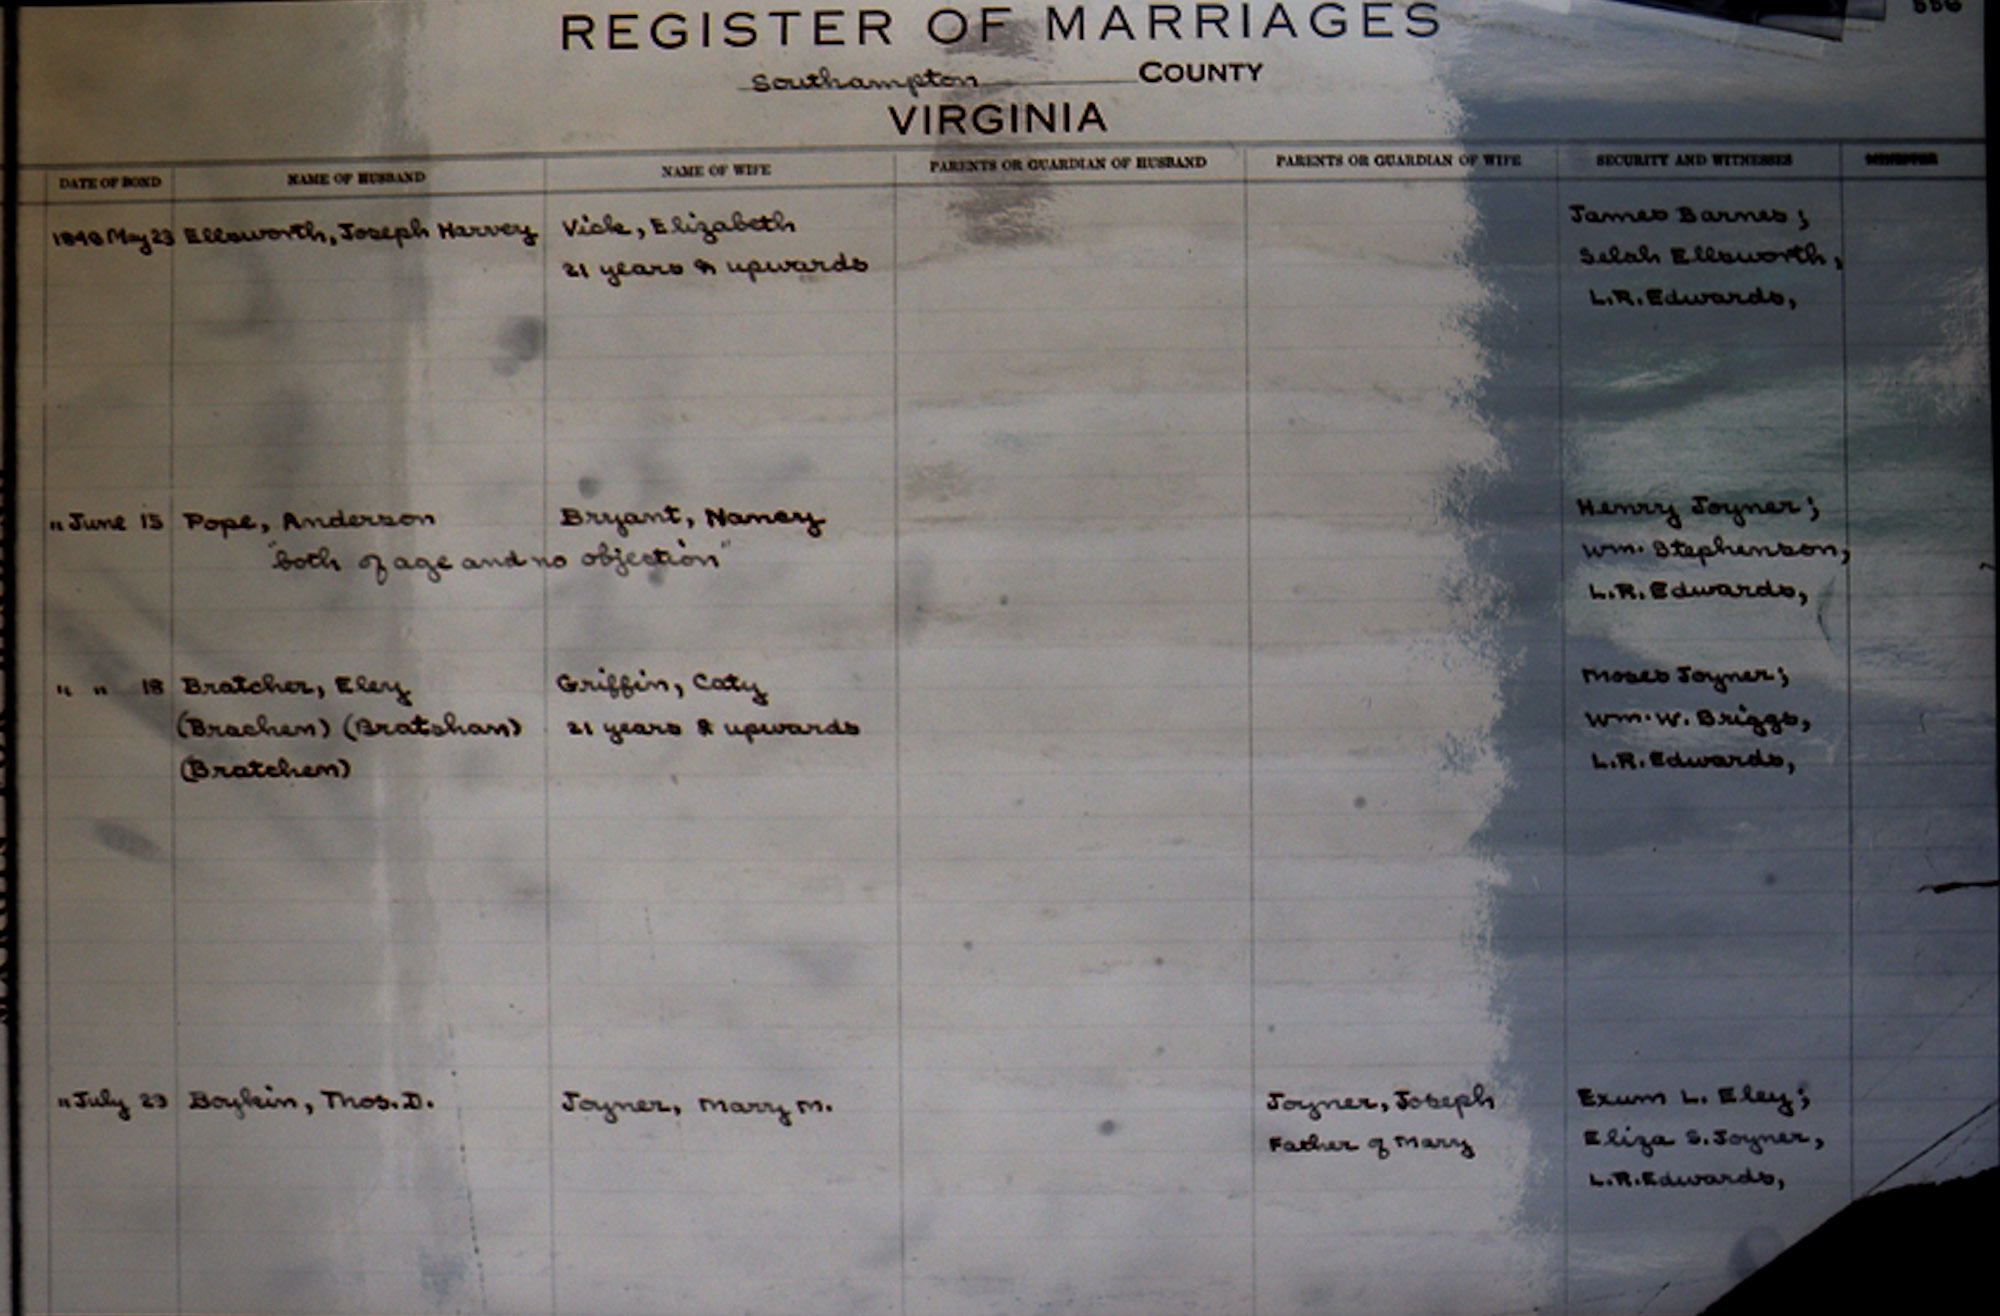 556
REGISTER OF MARRIAGES
Southampton COUNTY
VIRGINIA
DATE OF BOND NAME OF HUSBAND NAME OF WIFE PARENTS OR GUARDIAN OF HUSBAND PARENTS OR GUARDIAN OF WIFE SECURITY AND WITNESSES
May 23 Ellsworth, Joseph Harvey Vick, Elizabeth James Barnes;
21 years & upwards Selah Ellsworth,
L.R. Edwards,
" June 15 Pope, Anderson Bryant, Nancy Henry Joyner;
"both of age and no objection" Wm. Stephenson,
L.R. Edwards,
" " 18 Bratcher, Eley Griffin, Caty Moses Joyner;
(Brachen) (Bratshan) 21 years & upwards Wm. W. Briggs,
(Bratchen) L.R. Edwards,
" July 23 Boykin, Thos. D. Joyner, Marry M. Joyner, Joseph Exum L. Eley;
Father of Mary Eliza S. Joyner,
L.R. Edwards,